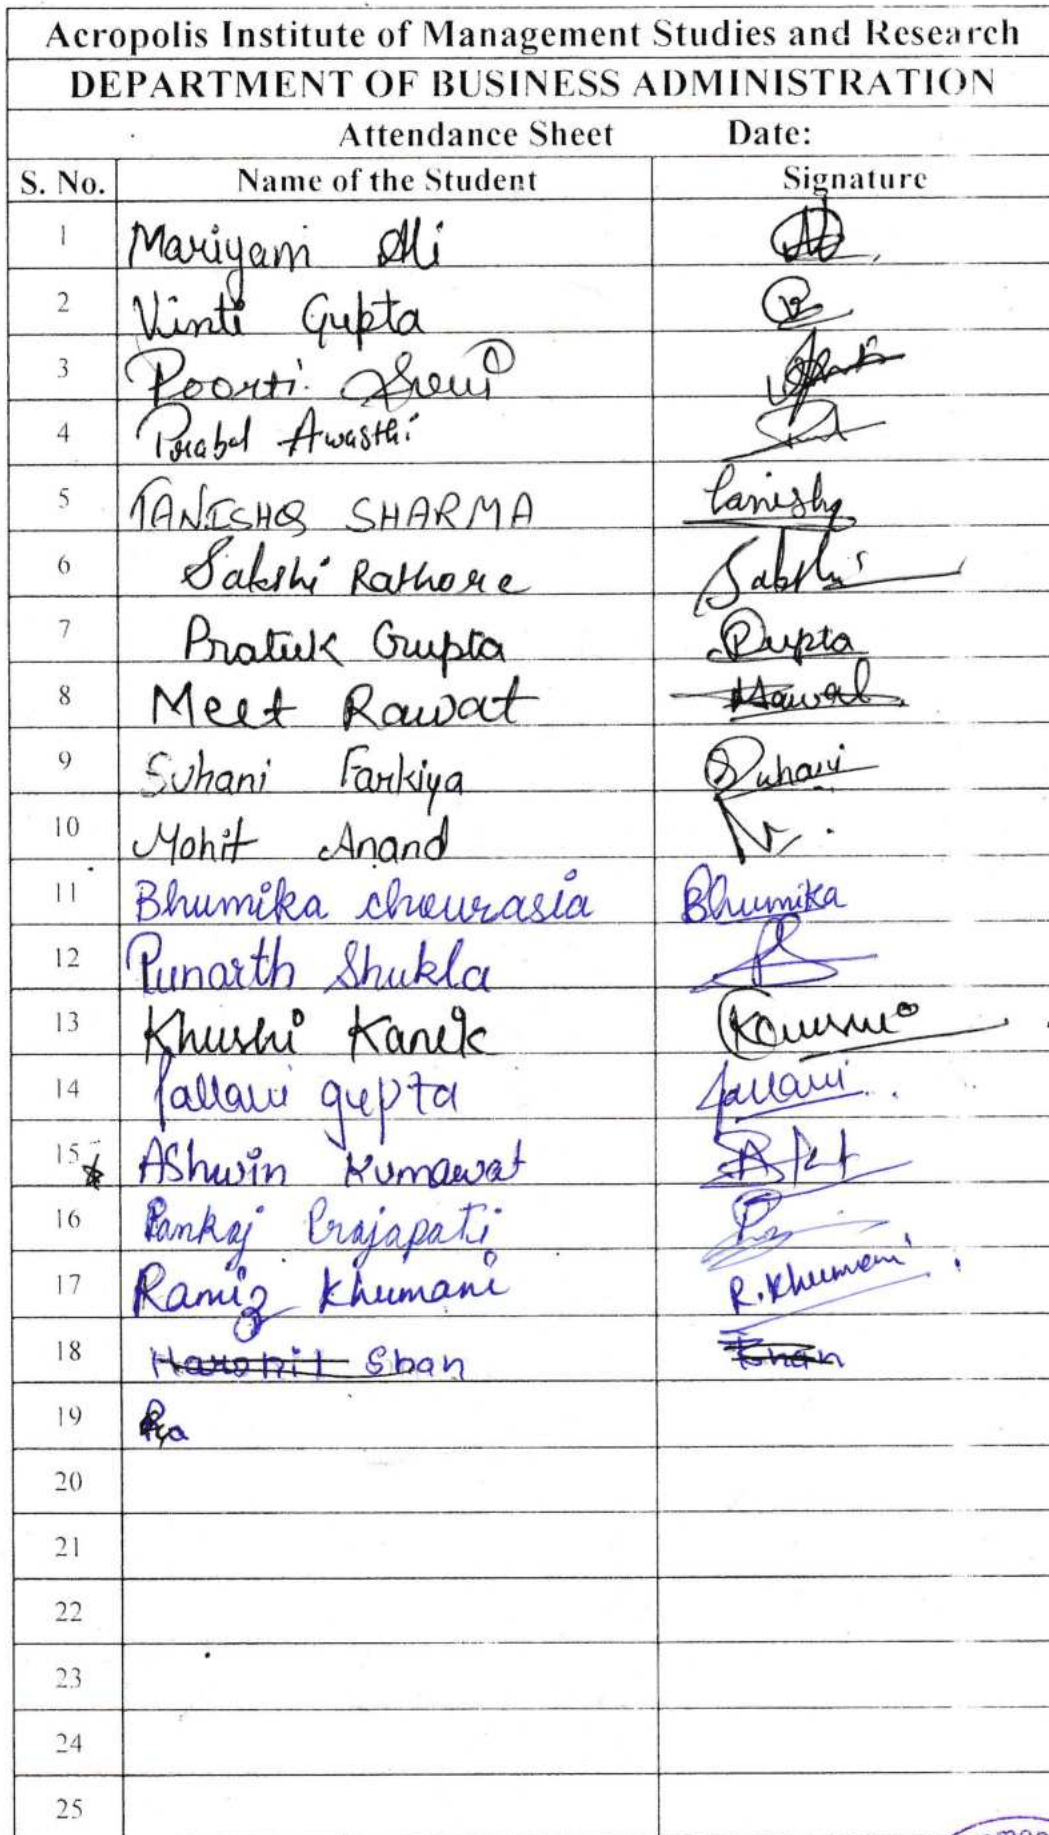 Acropolis Institute of Management Studies and Research
DEPARTMENT OF BUSINESS ADMINISTRATION
Attendance Sheet Date:
S. No. Name of the Student Signature
1 Mariyam Ali
2 Vinti Gupta
3 Poorti Soni
4 Prabal Awasthi
5 TANISHQ SHARMA Tanishq
6 Sakshi Rathore Sakshi
7 Pratik Gupta Gupta
8 Meet Rawat Rawat
9 Suhani Farkiya Suhani
10 Mohit Anand
11 Bhumika chourasia Bhumika
12 Punarth Shukla
13 Khushi Kanik
14 Pallavi gupta Pallavi
15 AShwin Kumawat
16 Pankaj Prajapati
17 Ramiz Khumani R. Khumani
18 Khan
19
20
21
22
23
24
25